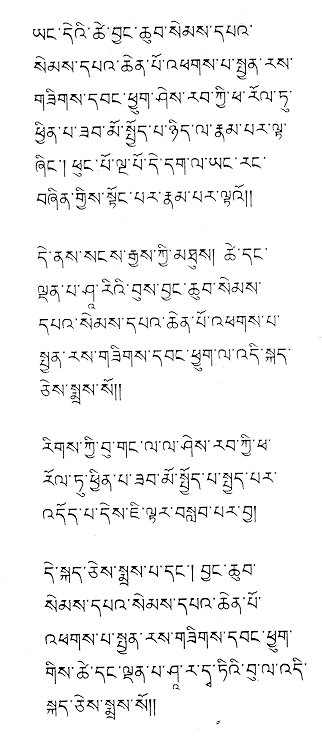 ཡང་དེའི་ཚེ་བྱང་ཆུབ་སེམས་དཔའ་
སེམས་དཔའ་ཆེན་པོ་འཕགས་པ་སྤྱན་རས་
གཟིགས་དབང་ཕྱུག་ཤེས་རབ་ཀྱི་ཕ་རོལ་ཏུ་
ཕྱིན་པ་ཟབ་མོ་སྤྱོད་པ་ཉིད་ལ་རྣམ་པར་ལྟ་
ཞིང་། ཕུང་པོ་ལྔ་པོ་དེ་དག་ལ་ཡང་རང་
བཞིན་གྱིས་སྟོང་པར་རྣམ་པར་ལྟའོ།།
དེ་ནས་སངས་རྒྱས་ཀྱི་མཐུས། ཚེ་དང་
ལྡན་པ་ཤཱ་རིའི་བུས་བྱང་ཆུབ་སེམས་
དཔའ་སེམས་དཔའ་ཆེན་པོ་འཕགས་པ་
སྤྱན་རས་གཟིགས་དབང་ཕྱུག་ལ་འདི་སྐད་
ཅེས་སྨྲས་སོ།།
རིགས་ཀྱི་བུ་གང་ལ་ལ་ཤེས་རབ་ཀྱི་ཕ་
རོལ་ཏུ་ཕྱིན་པ་ཟབ་མོ་སྤྱོད་པ་སྤྱད་པར་
འདོད་པ་དེས་ཇི་ལྟར་བསླབ་པར་བྱ།
དེ་སྐད་ཅེས་སྨྲས་པ་དང་། བྱང་ཆུབ་
སེམས་དཔའ་སེམས་དཔའ་ཆེན་པོ་
འཕགས་པ་སྤྱན་རས་གཟིགས་དབང་ཕྱུག་
གིས་ཚེ་དང་ལྡན་པ་ཤཱ་ར་དྭ་ཏིའི་བུ་ལ་འདི་
སྐད་ཅེས་སྨྲས་སོ།།